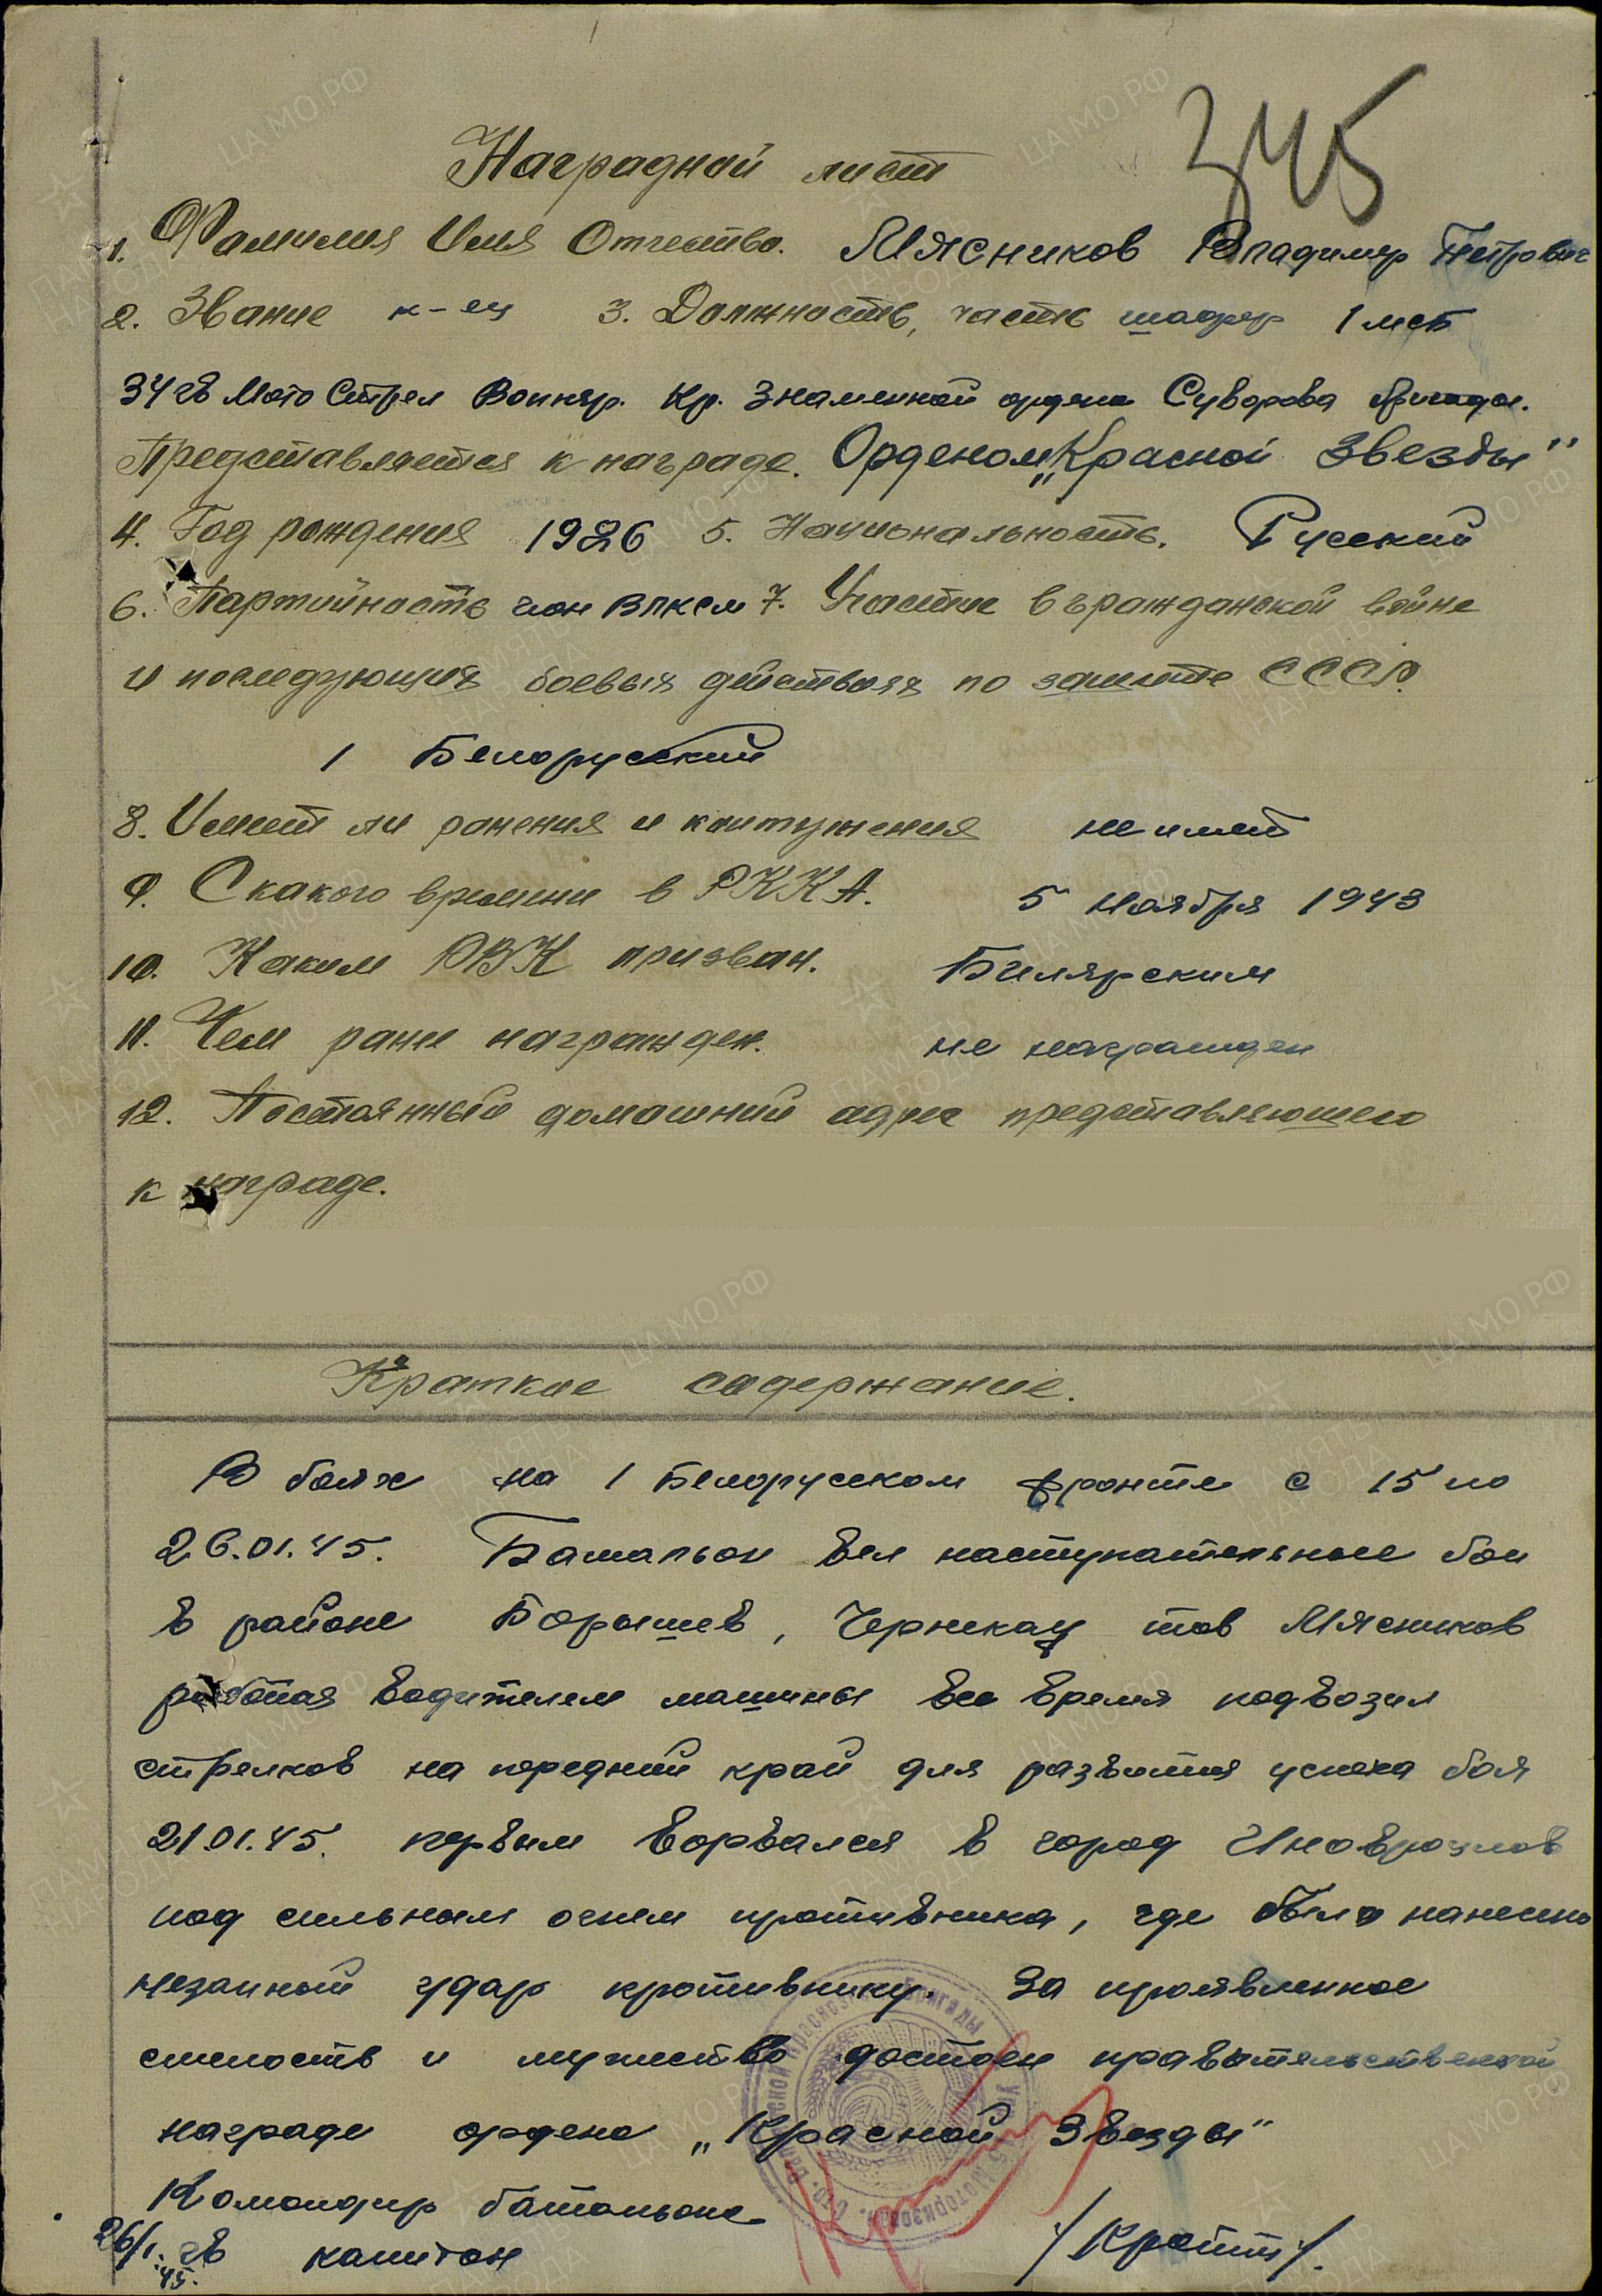 345
Наградной лист
1. Фамилия Имя Отчество. Мясников Владимир Петрович
2. Звание к-ец 3. Должность, часть шофер 1 мсб
34 гв Мото Стрел Вапняр. Кр. Знаменной ордена Суворова бригады.
Представляется к награде. Орденом „Красной Звезды"
4. Год рождения 1926 5. Национальность. Русский
6. Партийность член ВЛКСМ 7. Участие в гражданской войне
и последующих боевых действиях по защите СССР.
1 Белоруский
8. Имеет ли ранения и контужения не имеет
9. С какого времени в РККА. 5 ноября 1943
10. Каким РВК призван. Билярским
11. Чем ране награжден. не награжден
12. Постоянный домашний адрес представляющего
к награде.
Краткое содержание.
В боях на 1 Белорусском фронте с 15 по
26.01.45. Батальон вел наступательные бои
в районе Борышев, тов Мясников
работая водителем машины все время подвозил
стрелков на передний край для развития успеха боя
21.01.45. первым ворвался в город Иновроцлов
под сильным огнем противника, где было нанесено
незапный удар противнику. За проявленное
смелость и мужество достоен правительственной
награде ордена „Красной Звезды"
Командир батальона
26/1.45. гв капитан /Кротт/.